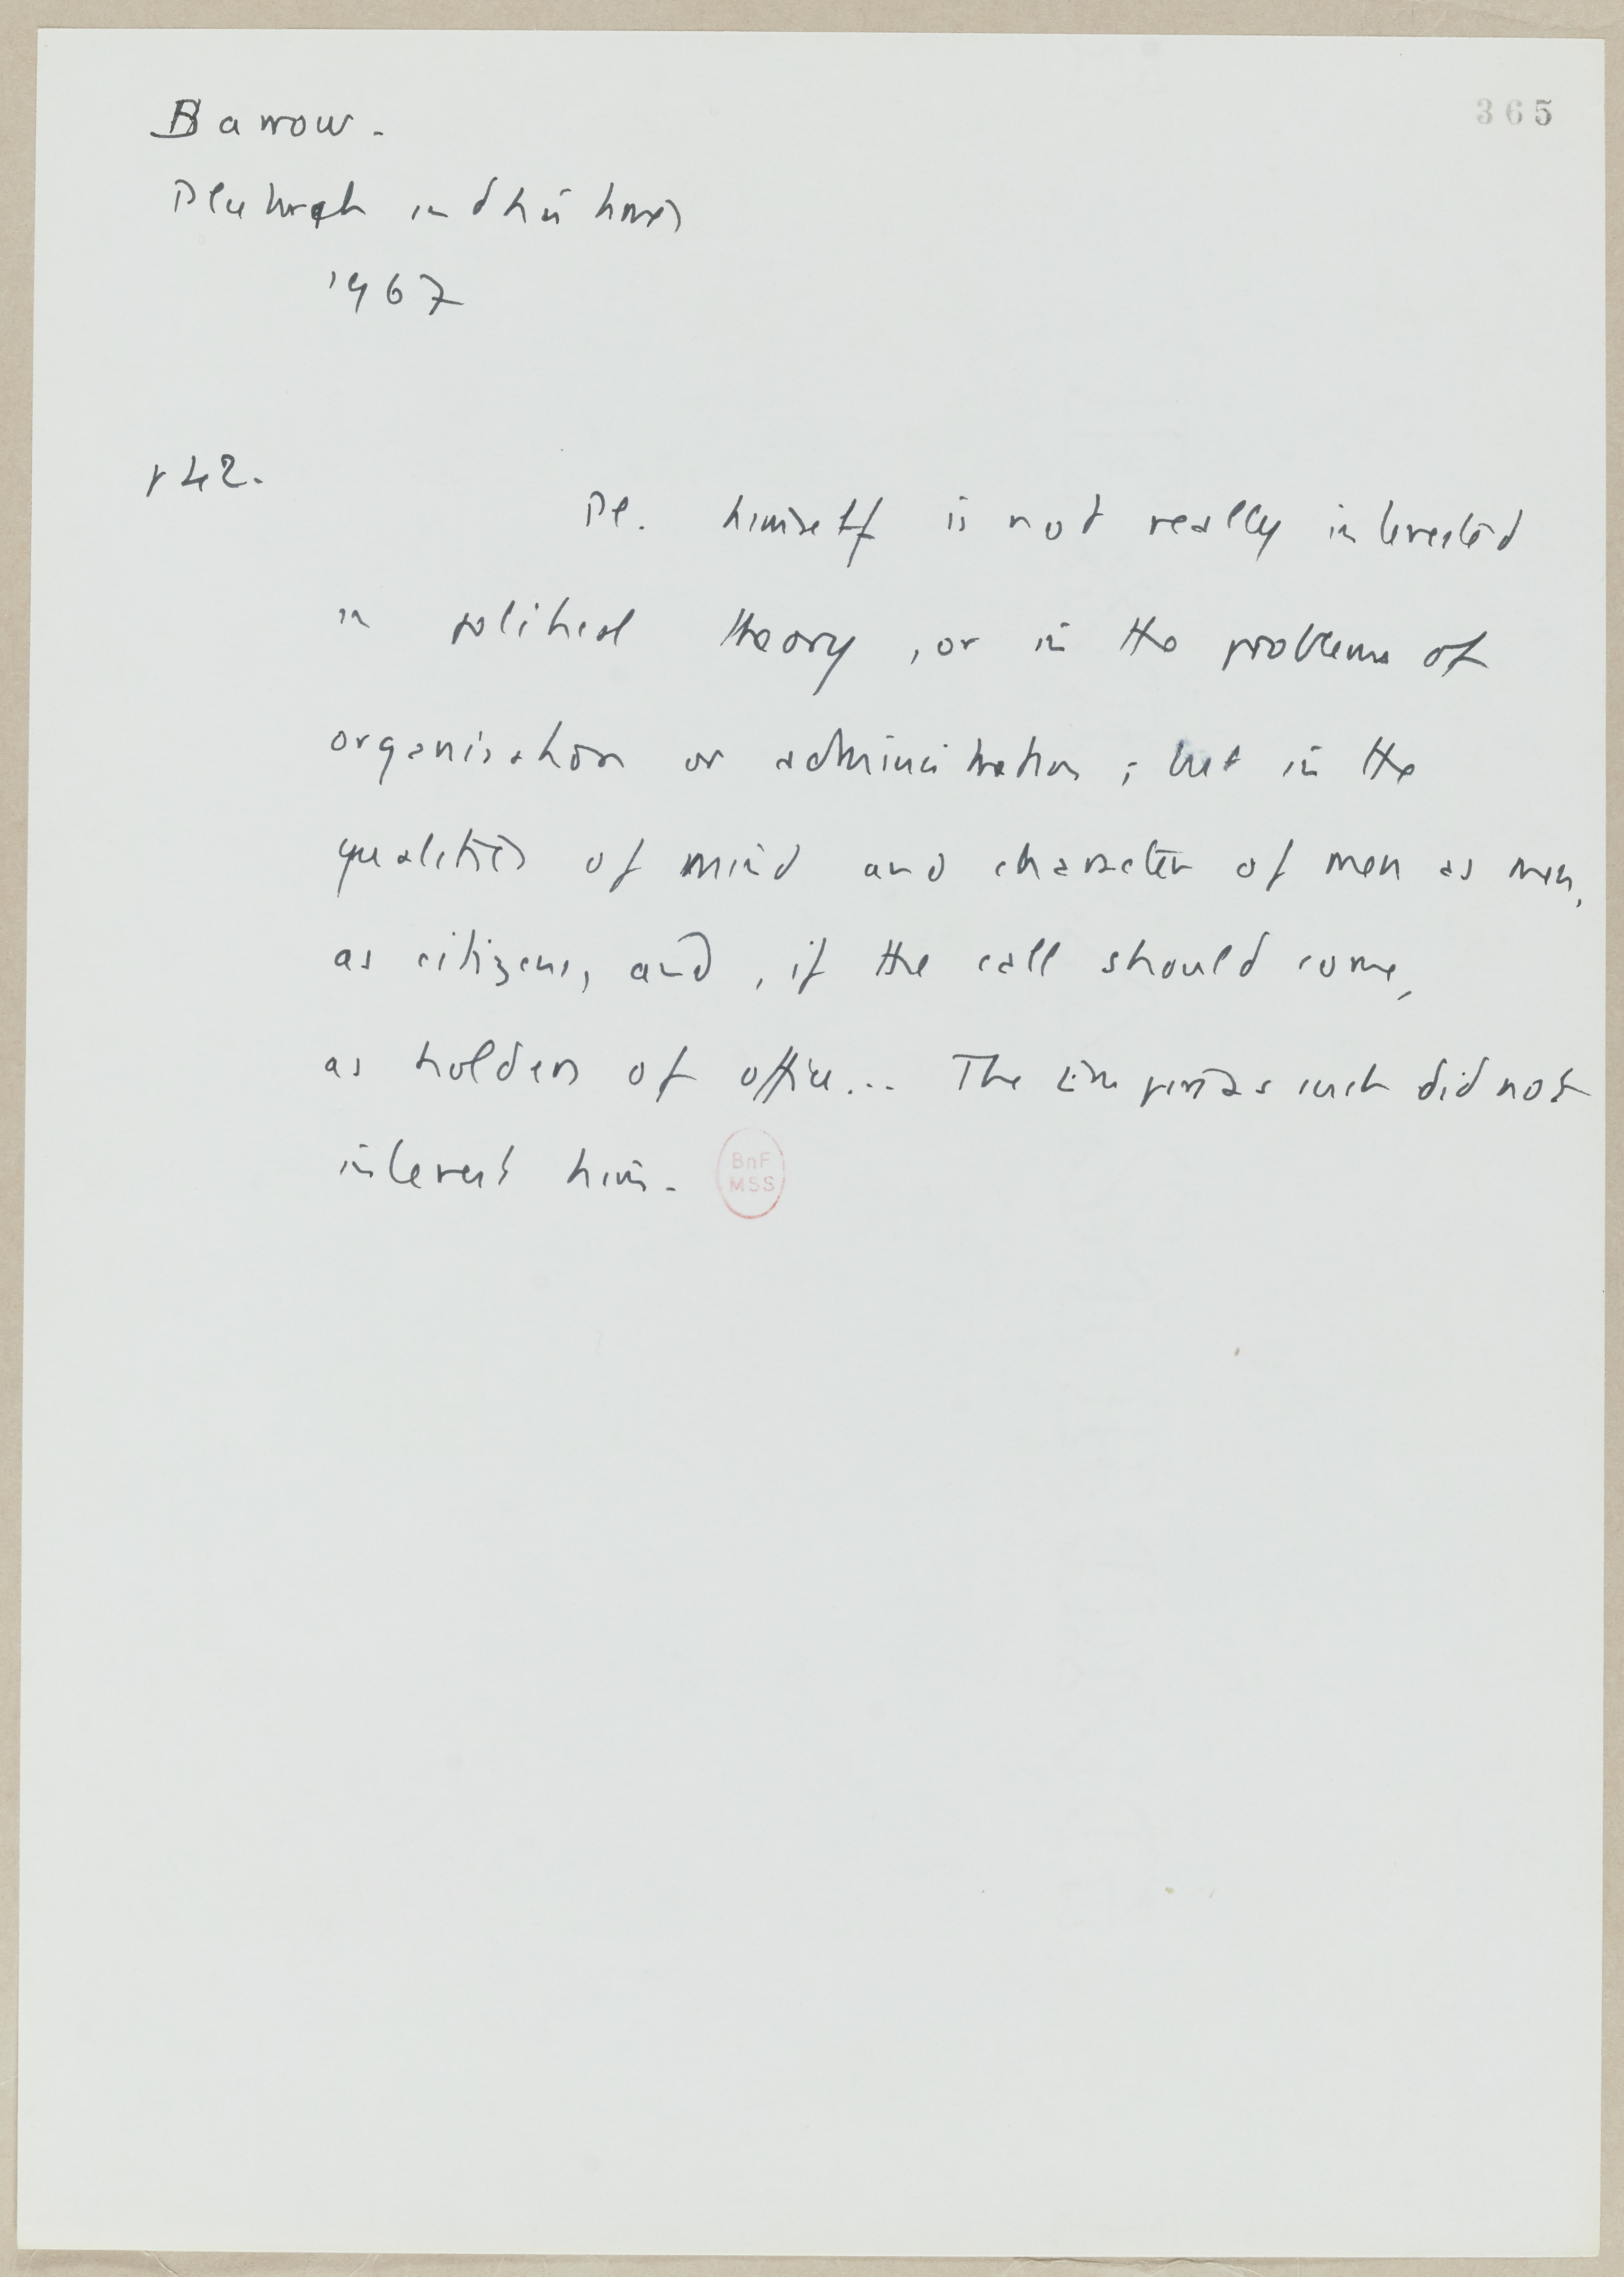 365
Barrow.
Plutarch and his times
1967
p 42.
Pl. himself is not really interested
in political theory, or in the problems of
organisation or administration; but in the
qualities of mind and character of men as men,
as citizens, and, if the call should come,
as holders of office... The Empire as such did not
interest him.
BnF
MSS